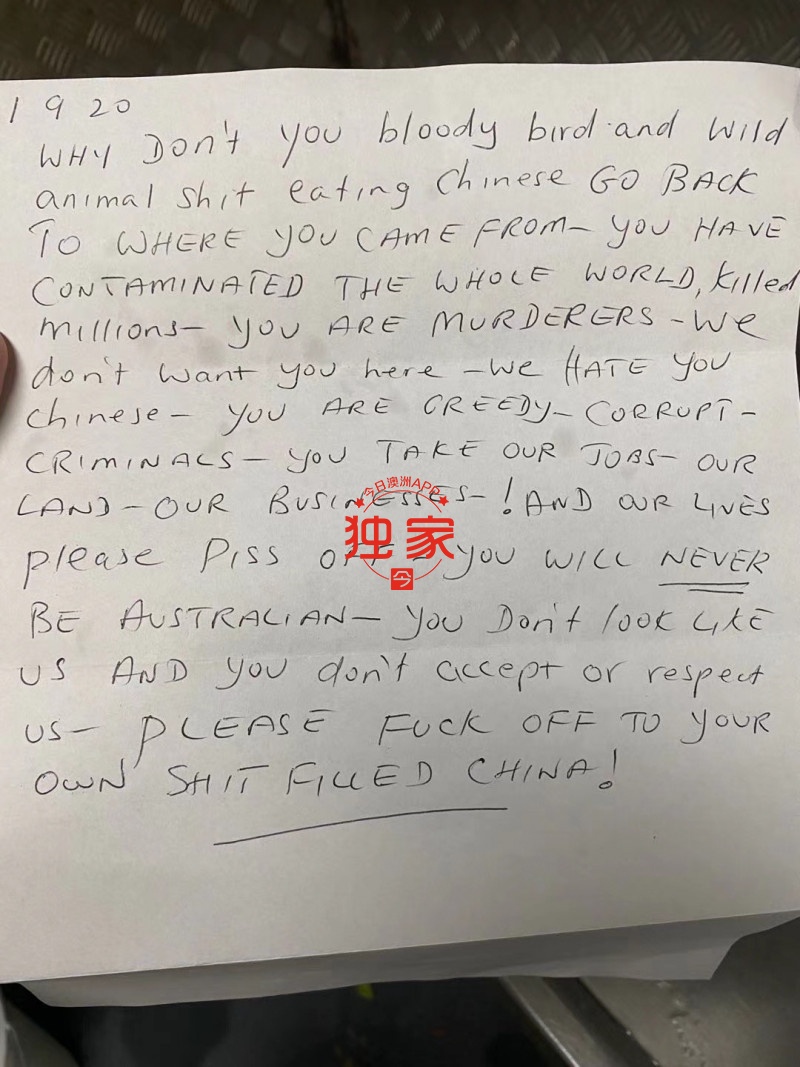 1 9 20
WHY DON't YOU bloody bird and wild
animal shit eating Chinese GO BACK
TO WHERE YOU CAME FROM- YOU HAVE
CONTAMINATED THE WHOLE WORLD, killed
millions- YOU ARE MURDERERS - We
don't want you here - we HATE YOU
Chinese- YOU ARE GREEDY- CORRUPT-
CRIMINALS- YOU TAKE OUR JOBS- OUR
LAND- OUR BUSINESSES-! AND OUR LIVES
今日澳洲APP
独家
今
please PISS OFF - YOU WILL NEVER
BE AUSTRALIAN- YOU DON't look LIKE
US AND YOU don't accept or respect
US- PLEASE FUCK OFF TO YOUR
OWN SHIT FILLED CHINA!